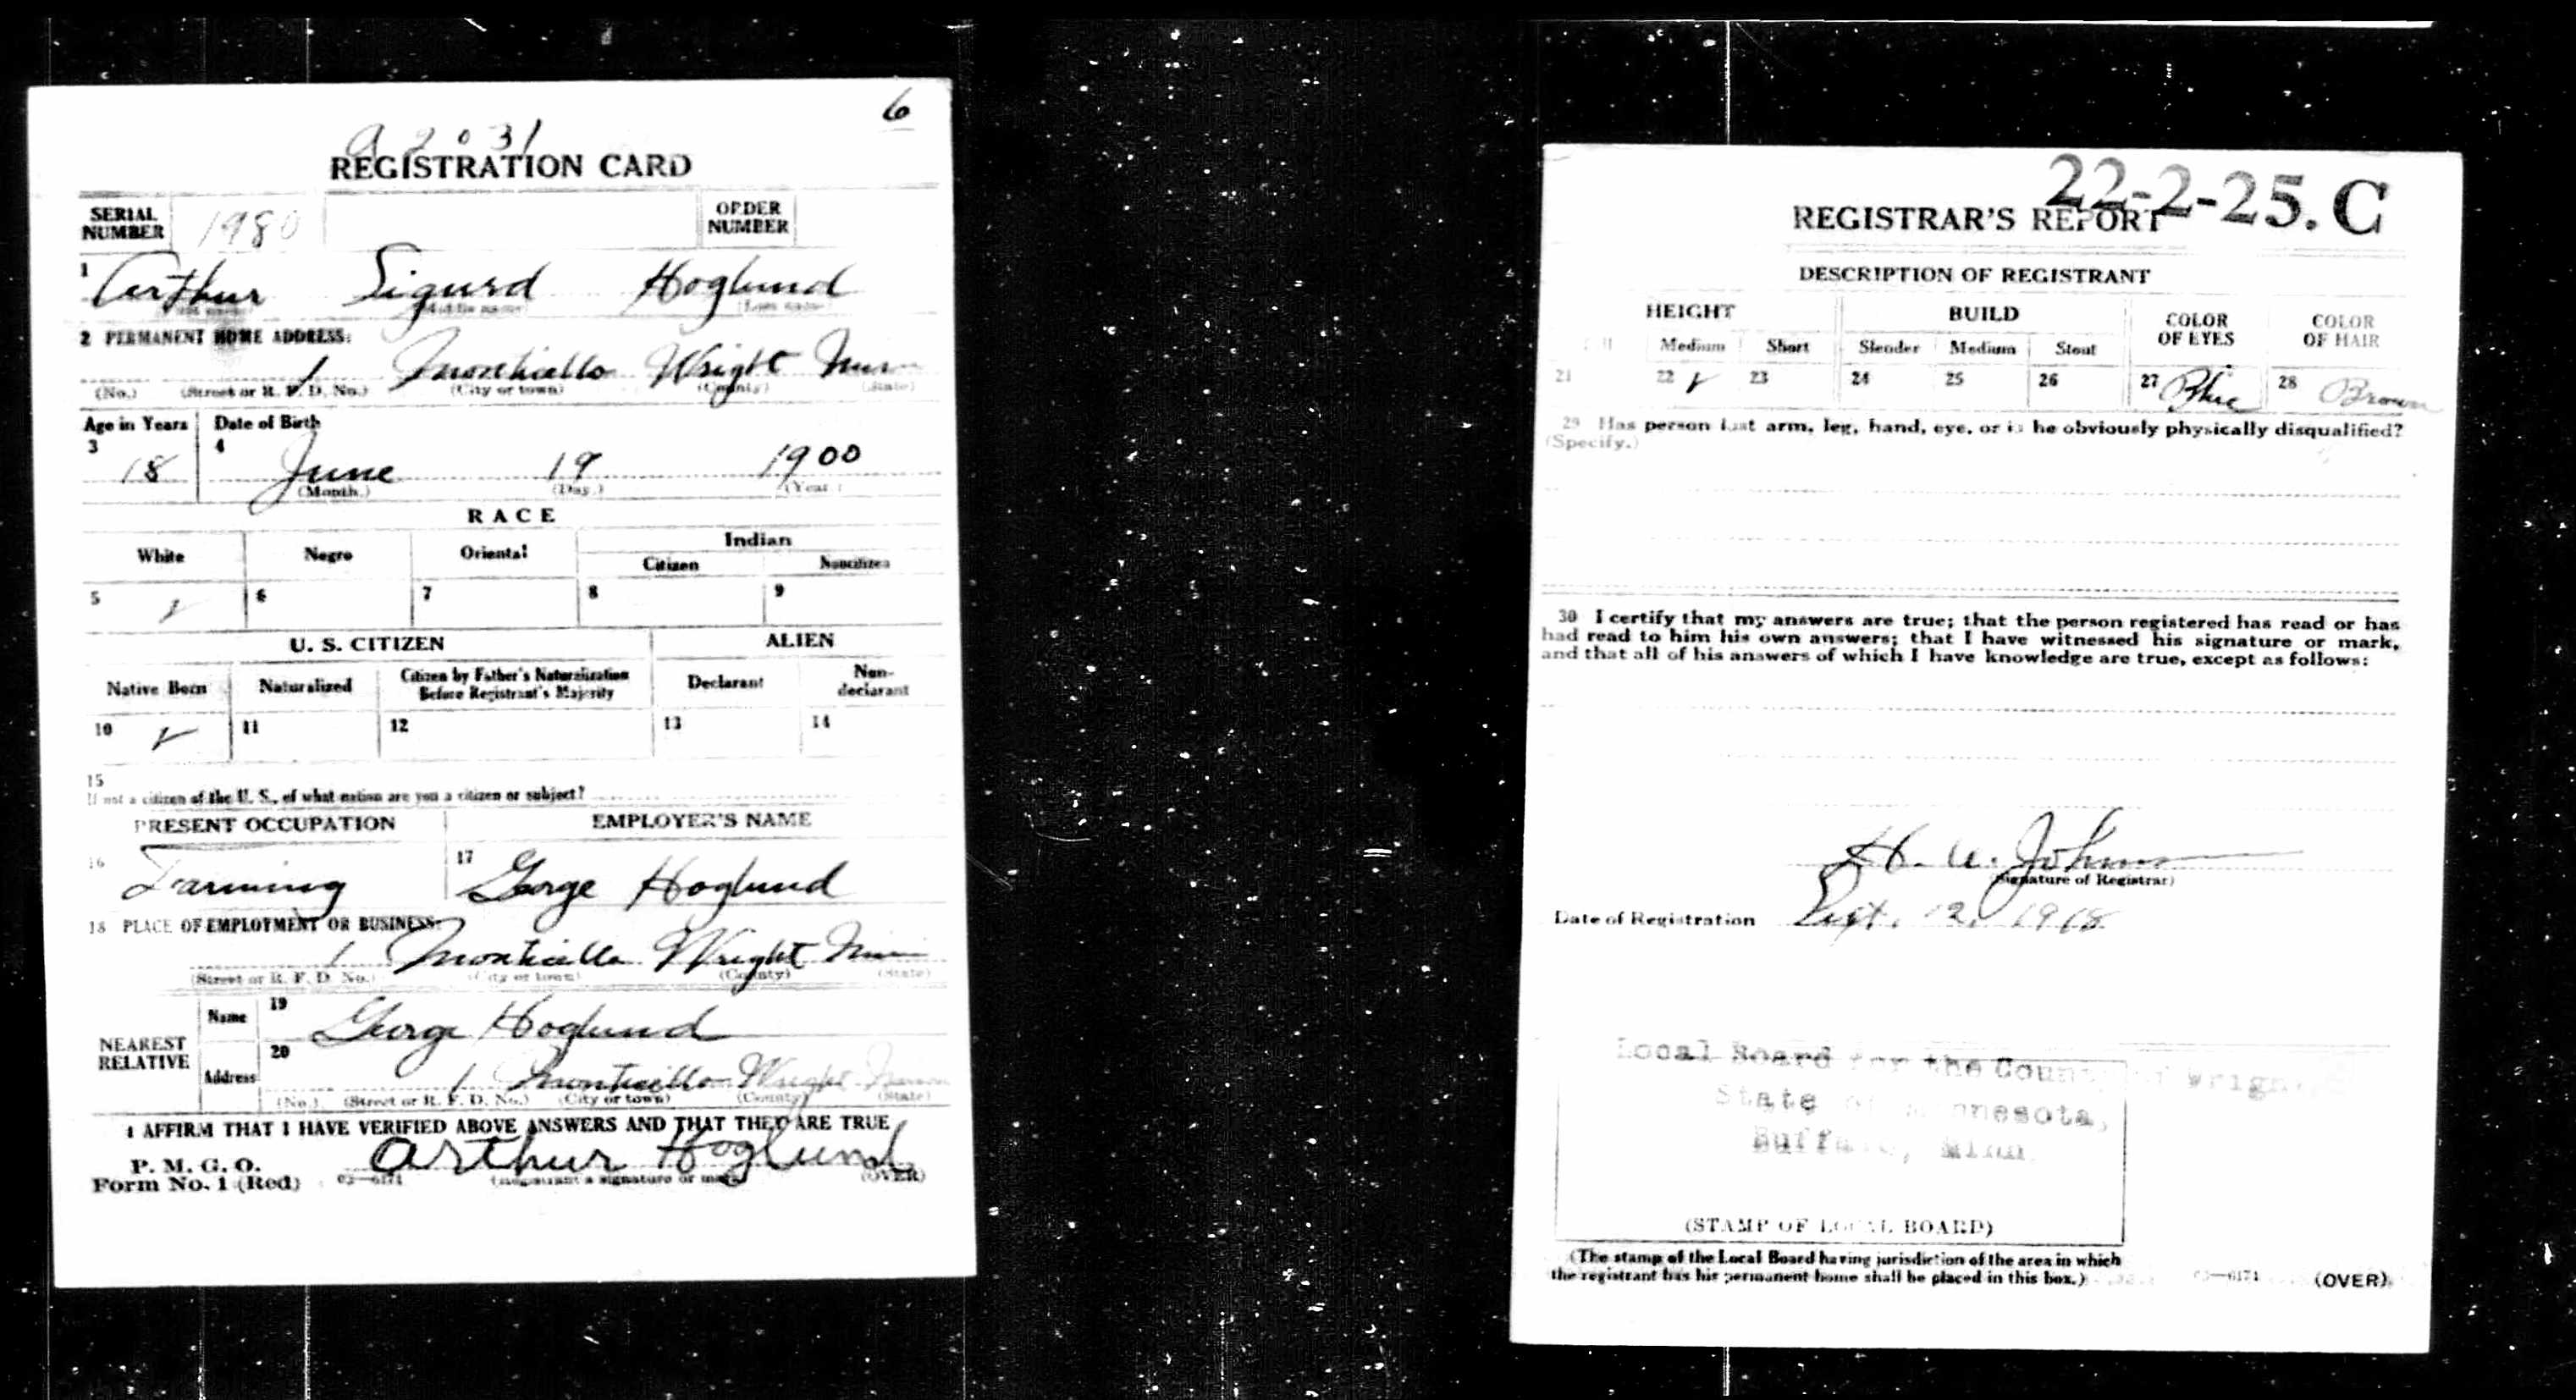 6
a 2031
REGISTRATION CARD
SERIAL NUMBER 1980 ORDER NUMBER
1 Arthur Sigurd Hoglund
(Middle name) (Last name)
2 PERMANENT HOME ADDRESS:
1 Monticello Wright Minn
(No.) (Street or R. F. D. No.) (City or town) (County) (State)
Age in Years Date of Birth
3 18 4 June 19 1900
(Month.) (Day.) (Year.)
RACE
White Negro Oriental Indian
Citizen Noncitizen
5 ✓ 6 7 8 9
U. S. CITIZEN ALIEN
Native Born Naturalized Citizen by Father's Naturalization Before Registrant's Majority Declarant Non-declarant
10 ✓ 11 12 13 14
15
If not a citizen of the U. S., of what nation are you a citizen or subject?
PRESENT OCCUPATION EMPLOYER'S NAME
16 Farming 17 George Hoglund
18 PLACE OF EMPLOYMENT OR BUSINESS:
1 Monticello Wright Minn
(Street or R. F. D. No.) (City or town) (County) (State)
NEAREST RELATIVE Name 19 George Hoglund
Address 20 1 Monticello Wright Minn
(No.) (Street or R. F. D. No.) (City or town) (County) (State)
I AFFIRM THAT I HAVE VERIFIED ABOVE ANSWERS AND THAT THEY ARE TRUE
P. M. G. O.
Form No. 1 (Red) 03—6171 Arthur Hoglund
(Registrant's signature or mark) (OVER)
22-2-25. C
REGISTRAR'S REPORT
DESCRIPTION OF REGISTRANT
HEIGHT BUILD COLOR OF EYES COLOR OF HAIR
Medium Short Slender Medium Stout
21 22 ✓ 23 24 25 26 27 Blue 28 Brown
29 Has person lost arm, leg, hand, eye, or is he obviously physically disqualified?
(Specify.)
30 I certify that my answers are true; that the person registered has read or has
had read to him his own answers; that I have witnessed his signature or mark,
and that all of his answers of which I have knowledge are true, except as follows:
H.
(Signature of Registrar)
Date of Registration Sept. 12, 1918
Local Board for the County of Wright
State of Minnesota,
Buffalo, Minn.
(STAMP OF LOCAL BOARD)
(The stamp of the Local Board having jurisdiction of the area in which
the registrant has his permanent home shall be placed in this box.) 03—6171 (OVER)